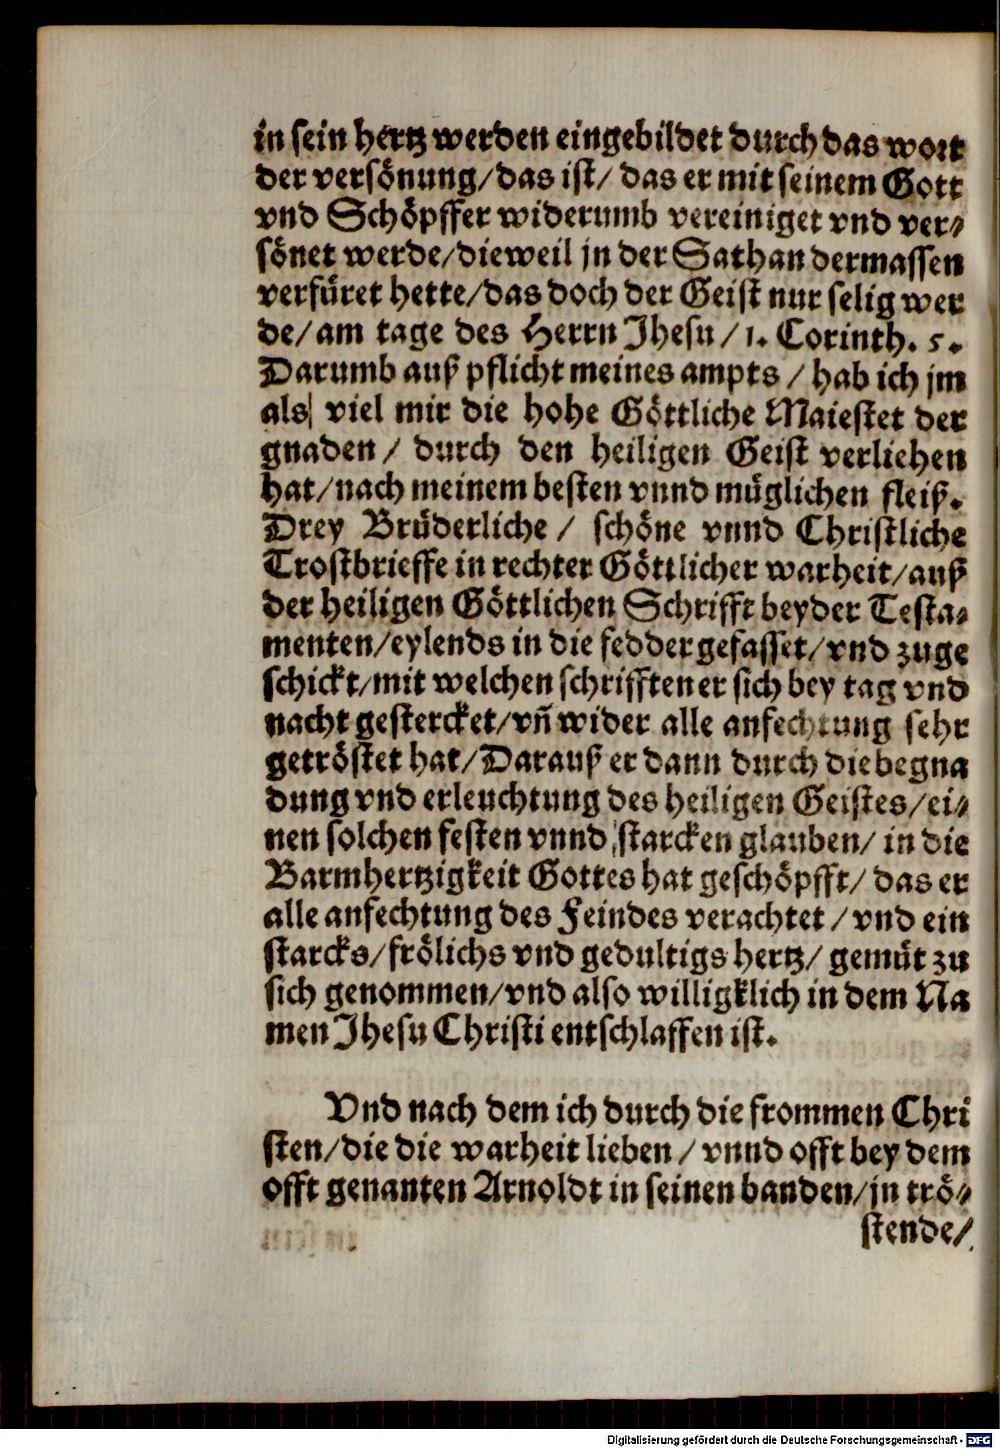 in sein hertz werden eingebildet durch das wort
der versönung/das ist/ das er mit seinem Gott
vnd Schöpffer widerumb vereiniget vnd ver⸗
sönet werde/dieweil jn der Sathan dermassen
verfüret hette/das doch der Geist nur selig wer
de/am tage des Herrn Jhesu/1. Corinth. 5.
Darumb auß pflicht meines ampts / hab ich jm
als viel mir die hohe Göttliche Maiestet der
gnaden / durch den heiligen Geist verliehen
hat/nach meinem besten vnnd müglichen fleiß.
Drey Brüderliche / schöne vnnd Christliche
Trostbrieffe in rechter Göttlicher warheit/auß
der heiligen Göttlichen Schrifft beyder Testa⸗
menten/eylends in die fedder gefasset/vnd zuge
schickt/mit welchen schrifften er sich bey tag vnd
nacht gestercket/vñ wider alle anfechtung sehr
getröstet hat/Darauß er dann durch die begna
dung vnd erleuchtung des heiligen Geistes/ei⸗
nen solchen festen vnnd starcken glauben/ in die
Barmhertzigkeit Gottes hat geschöpfft/ das er
alle anfechtung des Feindes verachtet / vnd ein
starcks/frölichs vnd gedultigs hertz/ gemüt zu
sich genommen/vnd also willigklich in dem Na
men Jhesu Christi entschlaffen ist.
Vnd nach dem ich durch die frommen Chri
sten/die die warheit lieben / vnnd offt bey dem
offt genanten Arnoldt in seinen banden/jn trö⸗
stende/
Digitalisierung gefördert durch die Deutsche Forschungsgemeinschaft - DFG